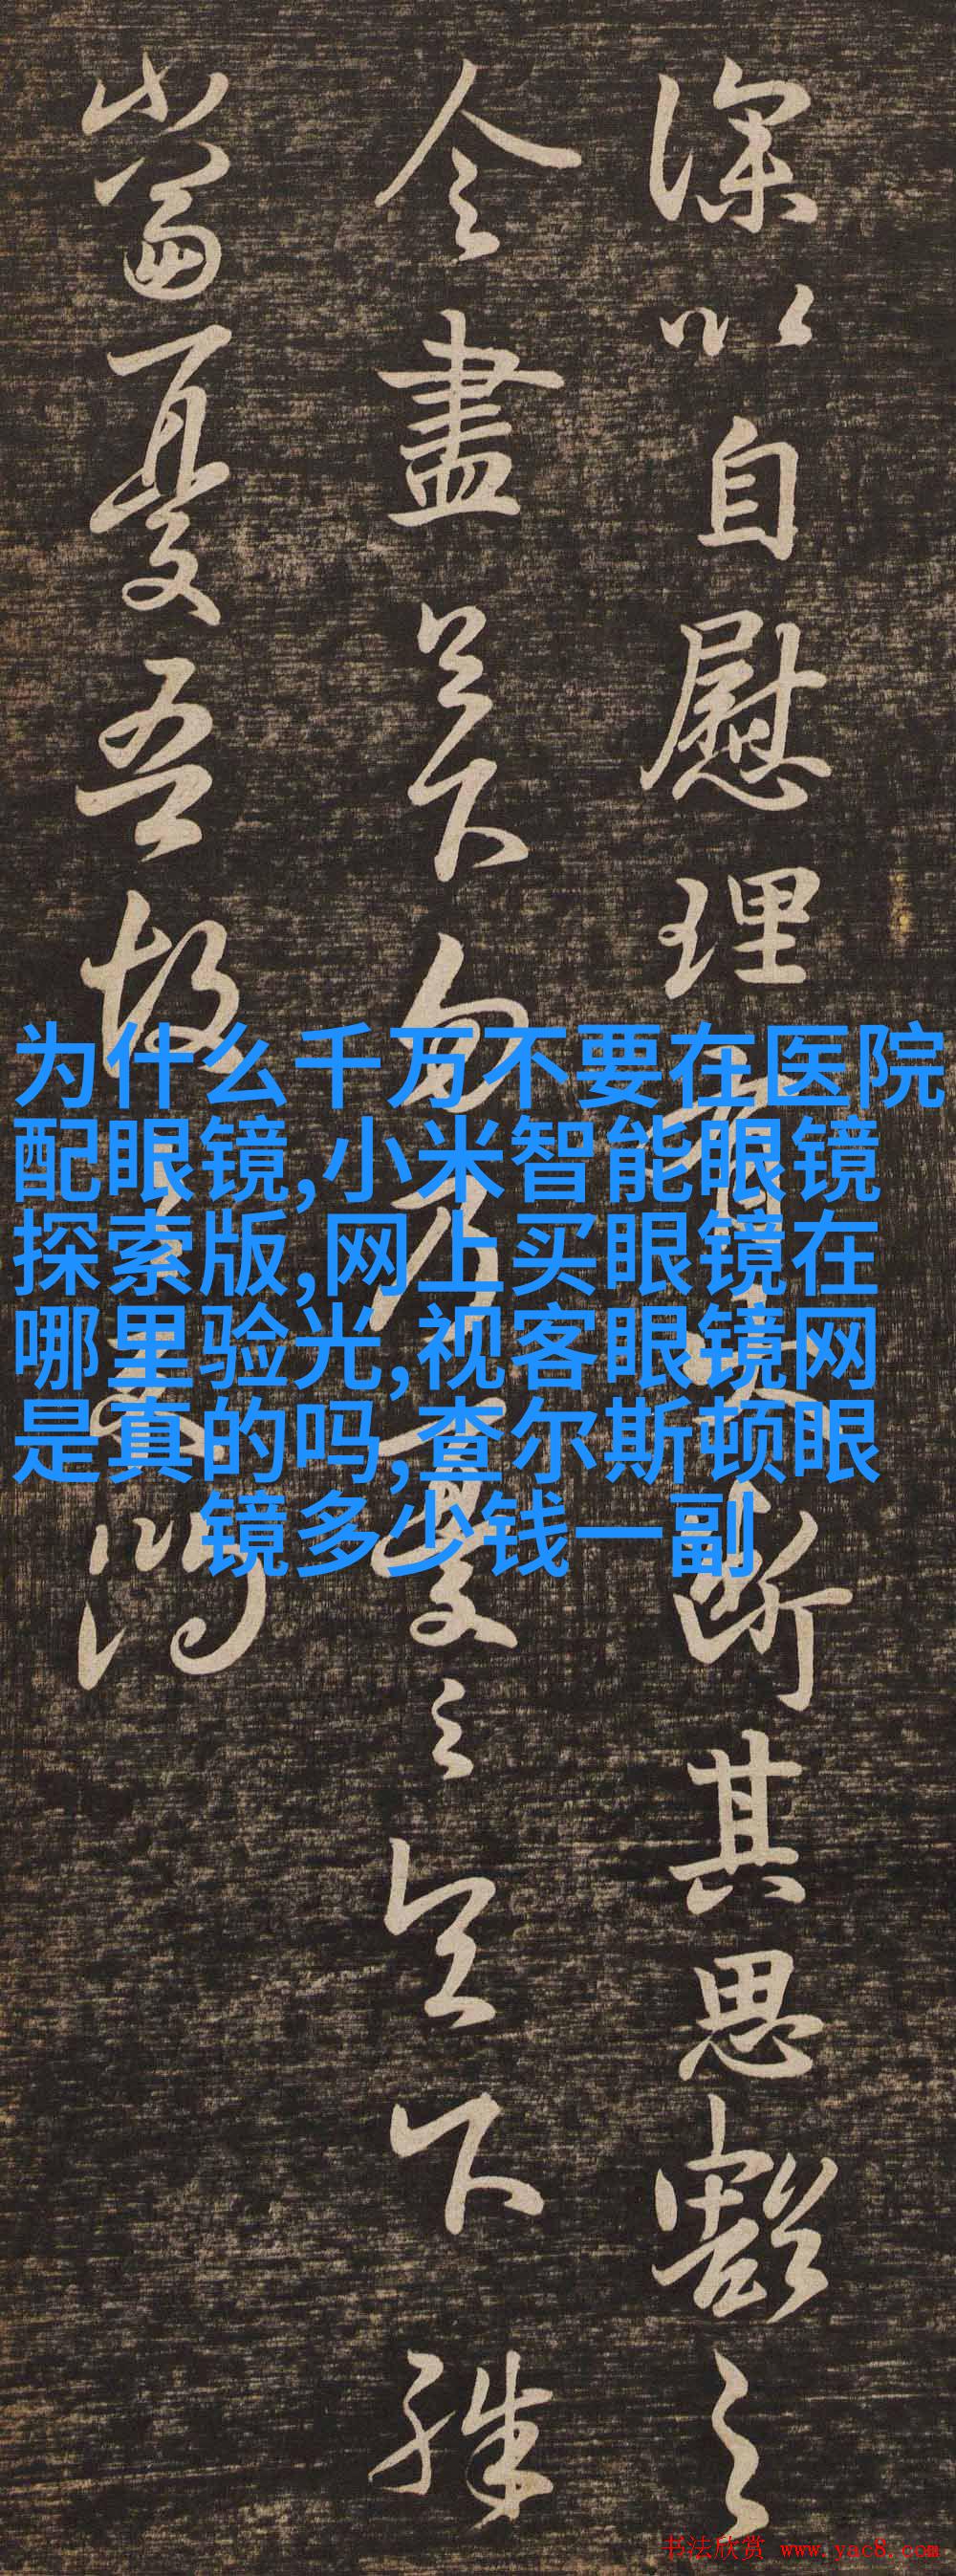 深以自慰理有大断其思豁之
令尽足下勿乃忧之足下殊
当忧吾故
为什么千万不要在医院
配眼镜,小米智能眼镜
探索版,网上买眼镜在
哪里验光,视客眼镜网
是真的吗,查尔斯顿眼
镜多少钱一副
书法欣赏 www.yac8.com